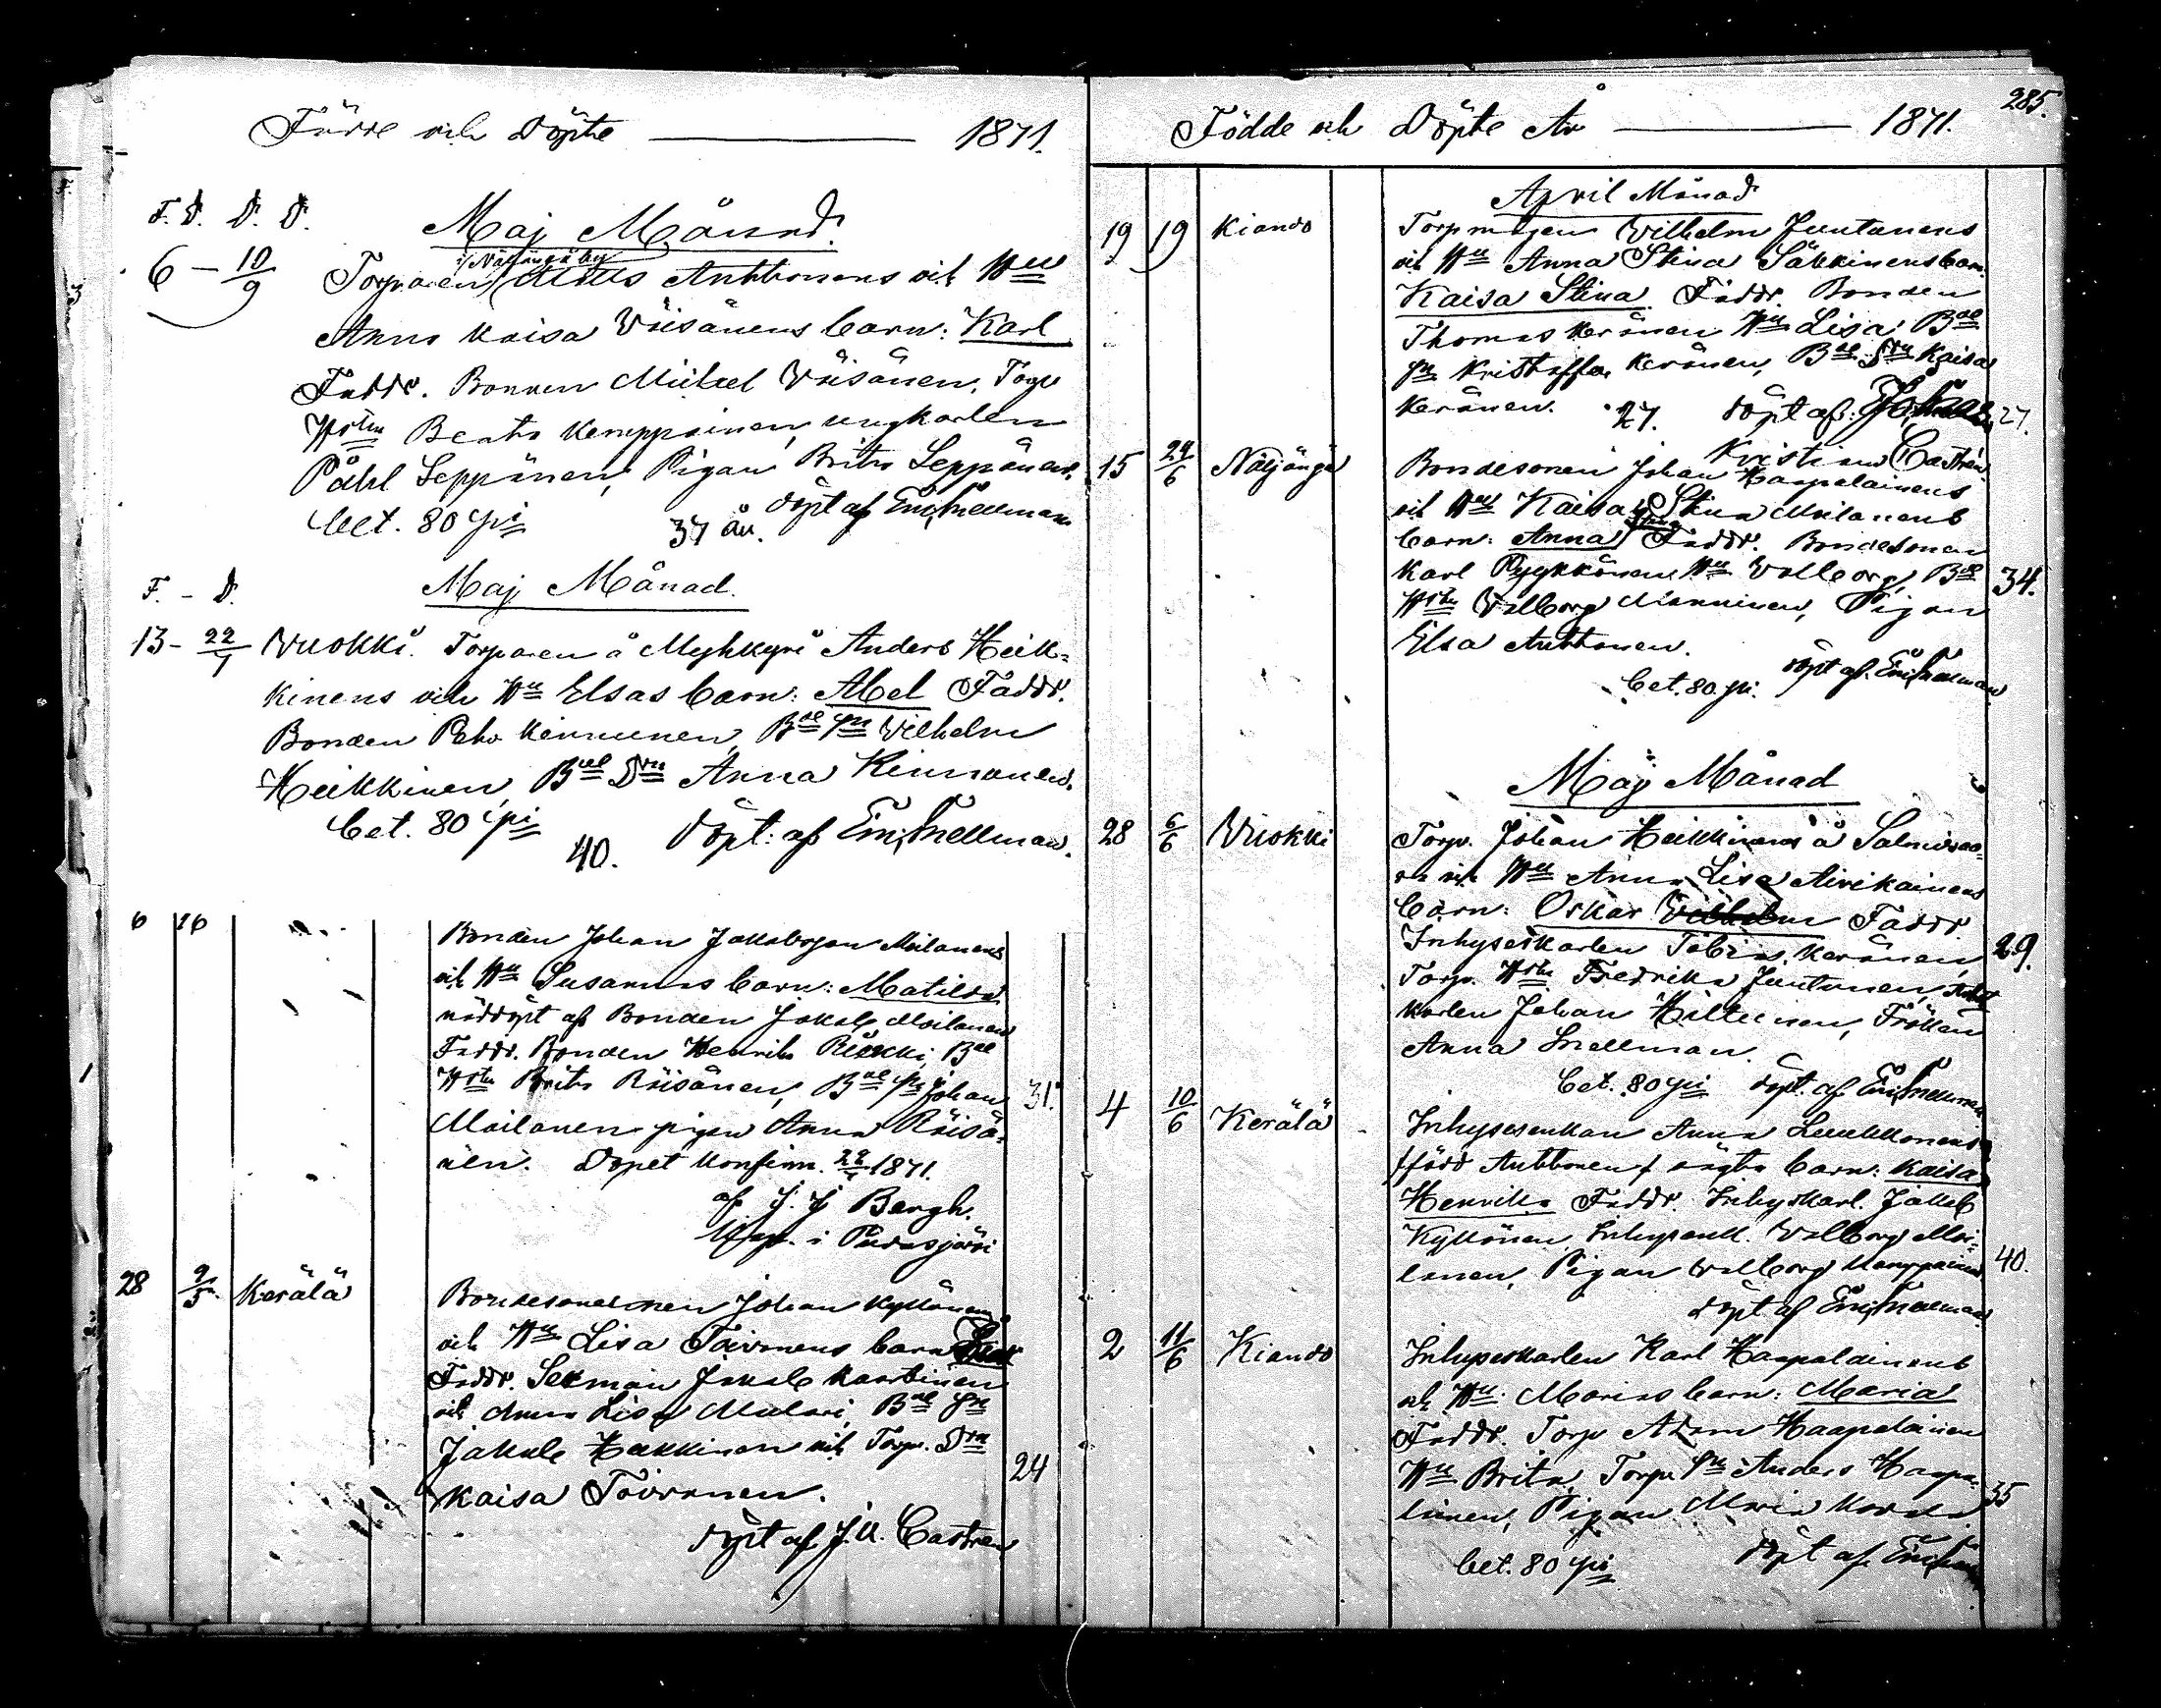 Födde och Döpte 1871.
F. D. D. D. Maj Månad.
i Näljängä by
6 - 10/9 Torparen Anttonens och Hu
Anna Kaisa Väisänens barn: Karl
Faddr. Bonden Mickel Väisänen, Torp
Hstru Beata Kemppainen, ungkarlen
Påhl Seppänen, Pigan Brita Seppänen.
bet. 80 pi 37 år. döpt af Em. Snellman
Maj Månad.
F. - D.
13 - 22/7 Vuokki. Torparen å Myhkyri Anders Heik-
kinens och Hu Elsas barn: Abel Faddr.
Bonden Petter Kinnunen, Bde Sn Vilhelm
Heikkinen, Bde Dru Anna Kinnunen.
bet. 80 pi 40. Döpt: af Em. Snellman.
6 16 Bonden Johan Jakobsson Moilanens
och Hu Susannas barn: Matilda
nöddöpt af Bonden Jakob Moilanen
Faddr. Bonden Henrik Räisänen, Bde
Hstru Brita Räisänen, Bde Sn Johan
Moilanen pigan Anna Räisä- 31.
nen. Dopet Konfirm. 1871.
af J. J Bergh.
Kap. i Pudasjärvi
28 Kerälä Bondesonen Johan Kyllönens
och Hu Lisa Toivonens barn
Faddr. Sexman Jakob Karttinen
och Anna Lisa Mulari, Bde Sn
Jakob Heikkinen och Torp. Dru 24
Kaisa Toivonen.
döpt af J. A. Castren
285.
Födde och Döpte År 1871.
April Månad
19 19 Kiando Torpmågen Vilhelm Juntunens
och Hu Anna Stina Säkkinens barn
Kaisa Stina. Faddr. Bonden
Thomas Keränen Hu Lisa, Bde
Sn Kristoffer Keränen, Bde Dru Kaisa
Keränen. 27. döpt af: 27.
Kristian Castrén
15 24/6 Näljängä Bondesonen Johan Haapalainens
och Hu Kaisa Stina Moilanens
Stina
barn: Anna Faddr. Bondesonen
Karl Pyykkönen Hu Valborg, Bde 34.
Hstru Valborg Manninen, Pigan
Elsa Anttonen.
bet. 80 pi. döpt af. Em. Snellman
Maj Månad
28 6/6 Vuokki Torp. Johan Heikkinens å Salmivaa-
ra och Hu Anna Lisa Airikainens
barn: Oskar Vilhelm Faddr
Inhyseskarlen Tobias Keränen, 29.
Torp. Hstru Fredrika Juntunen,
karlen Johan Hiltunen, Fröken
Anna Snellman.
bet. 80 pi döpt. af Em. Snellman
4 10/6 Kerälä Inhysesenkan Anna Leinonens
/född Anttonen/ oägta barn: Kaisa
Henrika Faddr. Inhyskarl. Jakob
Kyllönen, Inhysenk. Valborg Moi-
lanen, Pigan Valborg Kemppainen 40.
döpt af Em. Snellman
2 11/6 Kiando Inhyseskarlen Karl Haapalainens
och Hu. Marias barn: Maria
Faddr. Torp Adam Haapalainen
Hu Brita, Torp. Sn Anders Haapa-
lainen, Pigan Maria 35
bet. 80 pi döpt af Em. Snellman